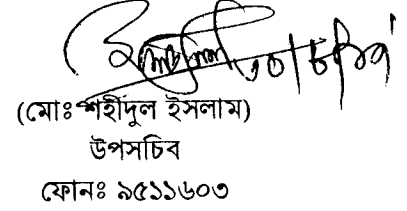 (মোঃ শহীদুল ইসলাম)
উপসচিব
ফোনঃ ৯৫১১৬০৩